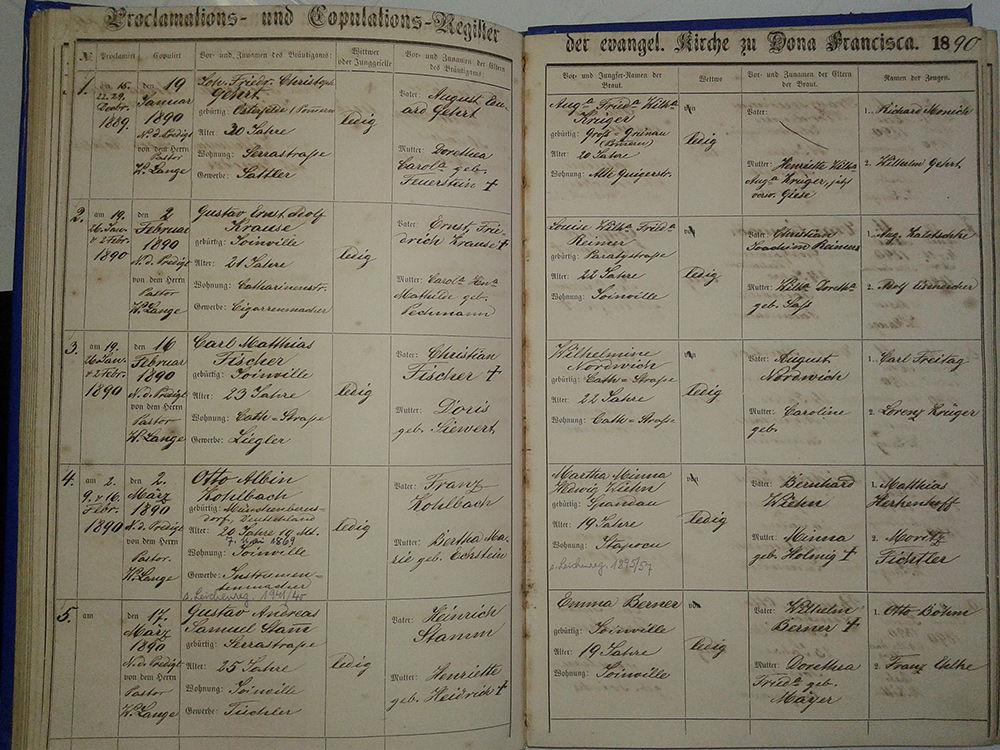 Proclamations- und Copulations-Register
der evangel. Kirche zu Dona Francisca. 1890
№ Proclamirt Copulirt Vor- und Zunamen des Bräutigams: Wittwer oder Junggeselle Vor- und Zunamen der Eltern des Bräutigams:
Vor- und Jungfer-Namen der Braut. Wittwe Vor- und Zunamen der Eltern der Braut. Namen der Zeugen.
1.
den 15.
22. 29.
Decbr.
1889.
den 19
Januar
1890
N. d. Predigt
von dem Herrn
Pastor
W. Lange
Joh. Friedr. Christoph
Gehrt
gebürtig:
Alter: 20 Jahre
Wohnung: Serrastraße
Gewerbe: Sattler
ledig
Vater: August Edu-
ard Gehrt
Mutter: Dorothea
Carola geb.
Feuerstein †
Augª Friedª Wilhª
Krüger
gebürtig: Groß-Grünau
Alter: 20 Jahre
Wohnung: Alte Guigerstr.
von
ledig
Vater:
Mutter: Henriette Wilhª
Augª Krüger, jetzt
verw. Giese
1. Richard Monich
2. Wilhelm Gehrt.
2.
am 19.
26. Jan.
v 2 Febr.
1890
den 2
Februar
1890
N. d. Predigt
von dem Herrn
Pastor
W. Lange
Gustav Ernst Adolf
Krause
gebürtig: Joinville
Alter: 21 Jahre
Wohnung: Catharinenstr.
Gewerbe: Cigarrenmacher
ledig
Vater: Ernst Frie-
drich Krause †
Mutter: Carola Henª
Mathilde geb.
Pechmann
Louise Wilhª Friedª
Reimer
gebürtig: Paratystraße
Alter: 22 Jahre
Wohnung: Joinville
von
ledig
Vater: Christian
Joachim Reimers
Mutter: Wilhª Dorothª
geb. Saß
1. Aug.
2. Adolf
3.
am 19.
26 Jan.
v 2 Febr.
1890
den 16
Februar
1890
N. d. Predigt
von dem Herrn
Pastor
W. Lange
Carl Matthias
Fischer
gebürtig: Joinville
Alter: 23 Jahre
Wohnung: Cath=Straße
Gewerbe: Ziegler
ledig
Vater: Christian
Fischer †
Mutter: Doris
geb. Siewert
Wilhelmine
Nordwich
gebürtig: Cath=Straße
Alter: 22 Jahre
Wohnung: Cath=Straße
von
ledig
Vater: August
Nordwich
Mutter: Caroline
geb.
1. Carl Freitag
2. Lorenz Krüger
4.
am 2.
9. v 16.
Febr.
1890
den 2.
März
1890
N. d. Predigt
von dem Herrn
Pastor.
W. Lange
Otto Albin
Kohlbach
gebürtig: Münchenberns-
dorf, Deutschland
Alter: 20 Jahre 9 M.
7. Mai 1869
Wohnung: Joinville
Gewerbe: Instrumen-
tenmacher
s. Leichenreg. 1941/40
ledig
Vater: Franz
Kohlbach
Mutter: Bertha Ma-
rie geb. Eckstein
Martha Minna
Hedwig Wiehn
gebürtig: Spandau
Alter: 19 Jahre
Wohnung: Itapocu
s. Leichenreg. 1895/57
von
ledig
Vater: Bernhard
Wiehn
Mutter: Minna
geb. Holmig †
1. Matthias
Herkenhoff
2. Moritz
Fichtler
5.
am
den 17.
März
1890
N. d. Predigt
von dem Herrn
Pastor
W. Lange
Gustav Andreas
Samuel Stam̄
gebürtig: Serrastraße
Alter: 25 Jahre
Wohnung: Joinville
Gewerbe: Tischler
ledig
Vater: Heinrich
Stamm
Mutter: Henriette
geb. Heidrich †
Emma Berner
gebürtig: Joinville
Alter: 19 Jahre
Wohnung: Joinville
von
ledig
Vater: Wilhelm
Berner †
Mutter: Dorothea
Friedª geb.
Mayer
1. Otto Böhm
2. Franz